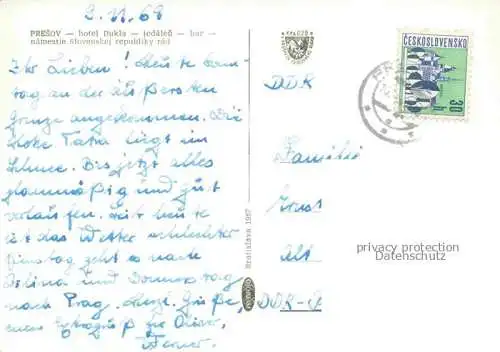 2. VI. 68
PREŠOV — hotel Dukla — jedáleň — bar —
námestie Slovenskej republiky rád
Ihr Lieben! Heute Sams-
tag an der äußersten
Grenze angekommen. Die
Hohe Tatra liegt im
Schnee. Bis jetzt alles
planmäßig und gut
verlaufen. Seit heute
ist das Wetter schlechter
Dienstag geht es nach
Žilina und Donnerstag
nach Prag. Herzl. Grüße,
einen Extragruß für
Bratislava 1967
ČESKOSLOVENSKO
30 h
DDR
Familie
Ernst
Alt
DDR-
privacy protection
Datenschutz